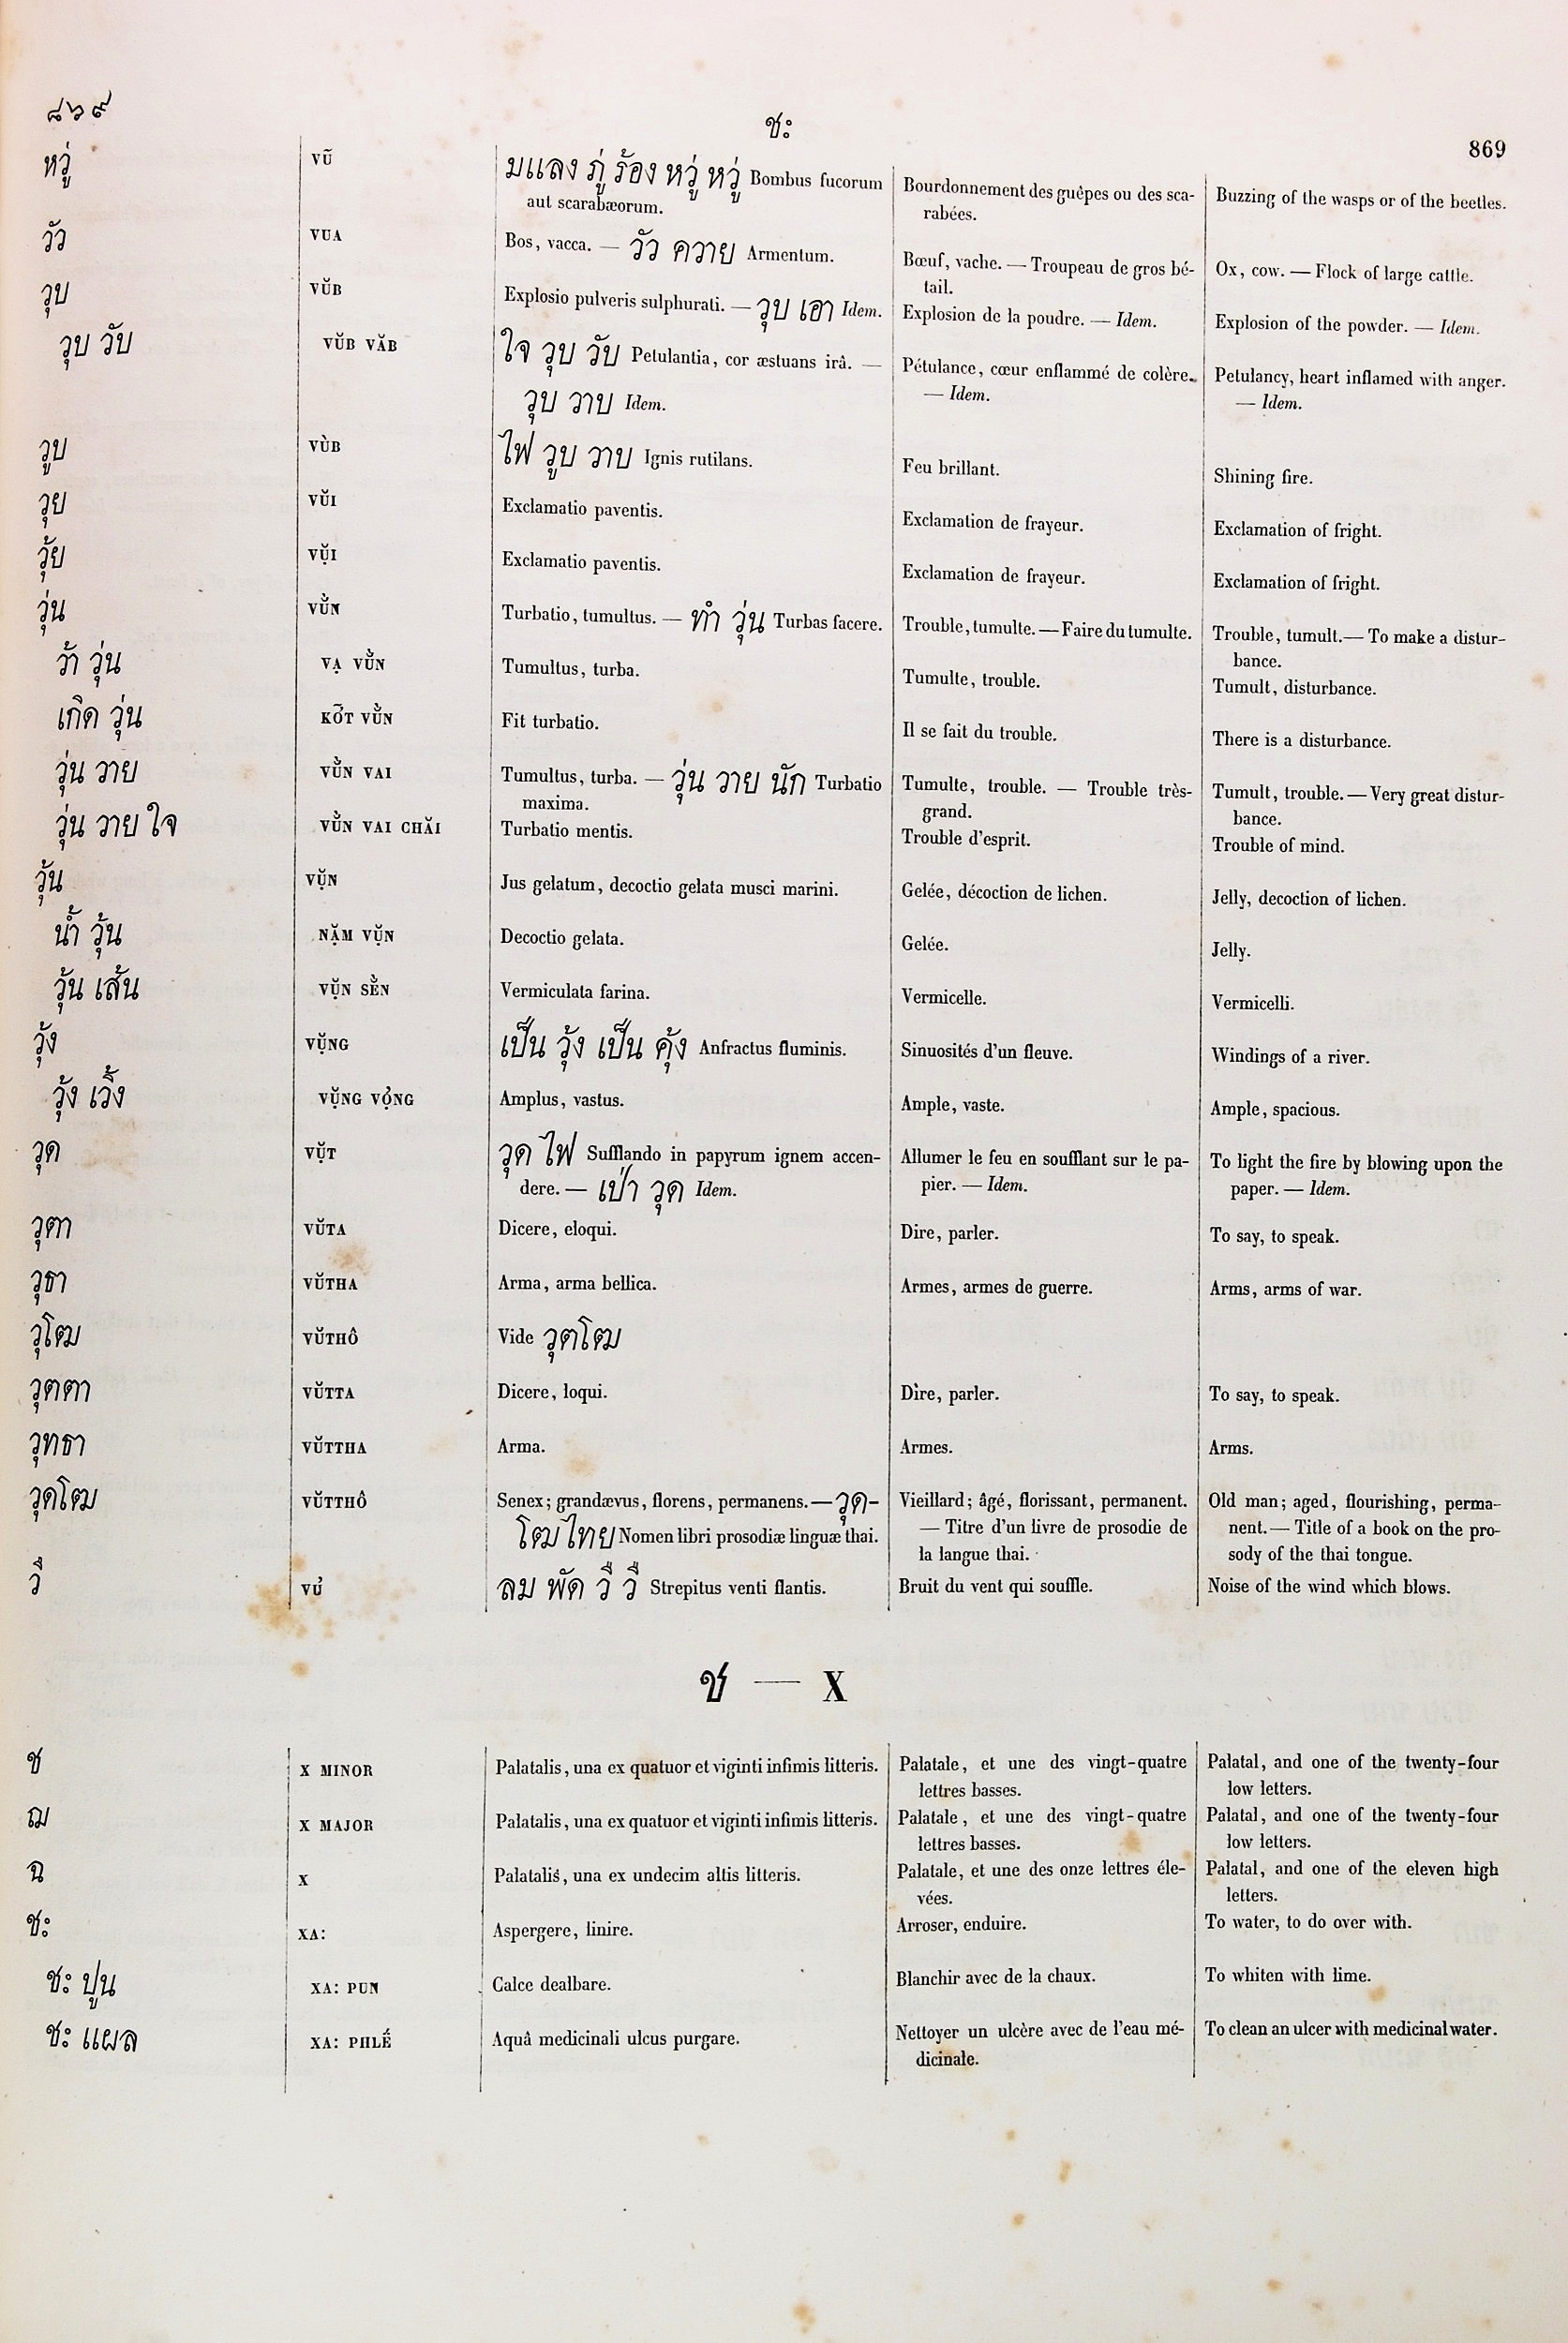 ๘๖๙
ชะ
869
หวู่ VŨ มแลง ภู่ ร้อง หวู่ หวู่ Bombus fucorum Bourdonnement des guêpes ou des sca- Buzzing of the wasps or of the beetles.
aut scarabæorum. rabées.
วัว VUA Bos, vacca. — วัว ควาย Armentum. Bœuf, vache. — Troupeau de gros bé- Ox, cow. — Flock of large cattle.
tail.
วุบ VŬB Explosio pulveris sulphurati. — วุบ เอา Idem. Explosion de la poudre. — Idem. Explosion of the powder. — Idem.
วุบ วับ VŬB VĂB ใจ วุบ วับ Petulantia, cor æstuans irâ. — Pétulance, cœur enflammé de colère. Petulancy, heart inflamed with anger.
วุบ วาบ Idem. — Idem. — Idem.
วูบ VÙB ไฟ วูบ วาบ Ignis rutilans. Feu brillant. Shining fire.
วุย VŬI Exclamatio paventis. Exclamation de frayeur. Exclamation of fright.
วุ้ย VỤ̆I Exclamatio paventis. Exclamation de frayeur. Exclamation of fright.
วุ่น VŬ̀N Turbatio, tumultus. — ทำ วุ่น Turbas facere. Trouble, tumulte. — Faire du tumulte. Trouble, tumult. — To make a distur-
bance.
ว้า วุ่น VẠ VŬ̀N Tumultus, turba. Tumulte, trouble. Tumult, disturbance.
เกิด วุ่น KỞ̆T VŬ̀N Fit turbatio. Il se fait du trouble. There is a disturbance.
วุ่น วาย VŬ̀N VAI Tumultus, turba. — วุ่น วาย นัก Turbatio Tumulte, trouble. — Trouble très- Tumult, trouble. — Very great distur-
maxima. grand. bance.
วุ่น วาย ใจ VŬ̀N VAI CHĂI Turbatio mentis. Trouble d'esprit. Trouble of mind.
วุ้น VỤ̆N Jus gelatum, decoctio gelata musci marini. Gelée, décoction de lichen. Jelly, decoction of lichen.
น้ำ วุ้น NẶM VỤ̆N Decoctio gelata. Gelée. Jelly.
วุ้น เส้น VỤ̆N SĔ̀N Vermiculata farina. Vermicelle. Vermicelli.
วุ้ง VỤ̆NG เป็น วุ้ง เป็น คุ้ง Anfractus fluminis. Sinuosités d'un fleuve. Windings of a river.
วุ้ง เวิ้ง VỤ̆NG VỌ̉NG Amplus, vastus. Ample, vaste. Ample, spacious.
วุด VỤ̆T วุด ไฟ Sufflando in papyrum ignem accen- Allumer le feu en soufflant sur le pa- To light the fire by blowing upon the
dere. — เป่า วุด Idem. pier. — Idem. paper. — Idem.
วุตา VŬTA Dicere, eloqui. Dire, parler. To say, to speak.
วุธา VŬTHA Arma, arma bellica. Armes, armes de guerre. Arms, arms of war.
วุโฒ VŬTHÔ Vide วุตโฒ
วุตตา VŬTTA Dicere, loqui. Dire, parler. To say, to speak.
วุทธา VŬTTHA Arma. Armes. Arms.
วุดโฒ VŬTTHÔ Senex; grandævus, florens, permanens. — วุด- Vieillard; âgé, florissant, permanent. Old man; aged, flourishing, perma-
โฒไทย Nomen libri prosodiæ linguæ thai. — Titre d'un livre de prosodie de nent. — Title of a book on the pro-
la langue thai. sody of the thai tongue.
วื VỬ ลม พัด วื วื Strepitus venti flantis. Bruit du vent qui souffle. Noise of the wind which blows.
ช — X
ช X MINOR Palatalis, una ex quatuor et viginti infimis litteris. Palatale, et une des vingt-quatre Palatal, and one of the twenty-four
lettres basses. low letters.
ฌ X MAJOR Palatalis, una ex quatuor et viginti infimis litteris. Palatale, et une des vingt-quatre Palatal, and one of the twenty-four
lettres basses. low letters.
ฉ X Palatalis, una ex undecim altis litteris. Palatale, et une des onze lettres éle- Palatal, and one of the eleven high
vées. letters.
ชะ XA: Aspergere, linire. Arroser, enduire. To water, to do over with.
ชะ ปูน XA: PUN Calce dealbare. Blanchir avec de la chaux. To whiten with lime.
ชะ แผล XA: PHLẾ Aquâ medicinali ulcus purgare. Nettoyer un ulcère avec de l'eau mé- To clean an ulcer with medicinal water.
dicinale.